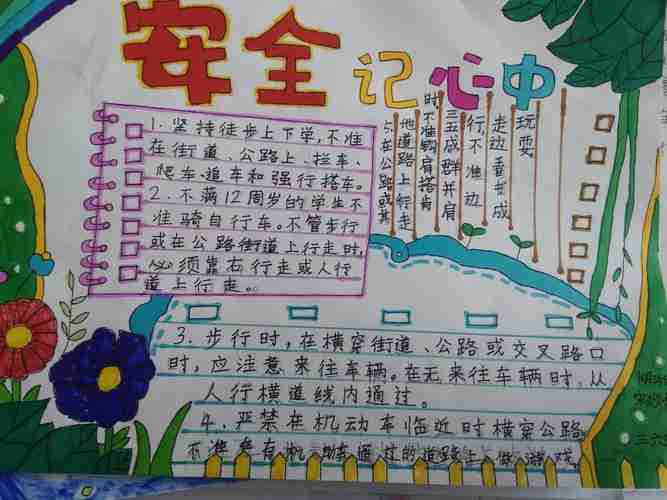 安全记心中
1.坚持徒步上下学,不准
在街道、公路上、拦车、
爬车、追车和强行搭车。
2.不满12周岁的学生不
准骑自行车。不管步行
或在公路街道上行走时,
必须靠右行走或人行
道上行走。
5.在公路或其
他道路上行走
时,不准勾肩搭背
三五成群并肩
行,不准边
走边看书或
玩耍
3.步行时,在横穿街道、公路或交叉路口
时,应注意来往车辆。在无来往车辆时,从
人行横道线内通过。
4.严禁在机动车临近时横穿公路
不准在有机动车通过的道路上做游戏
三六